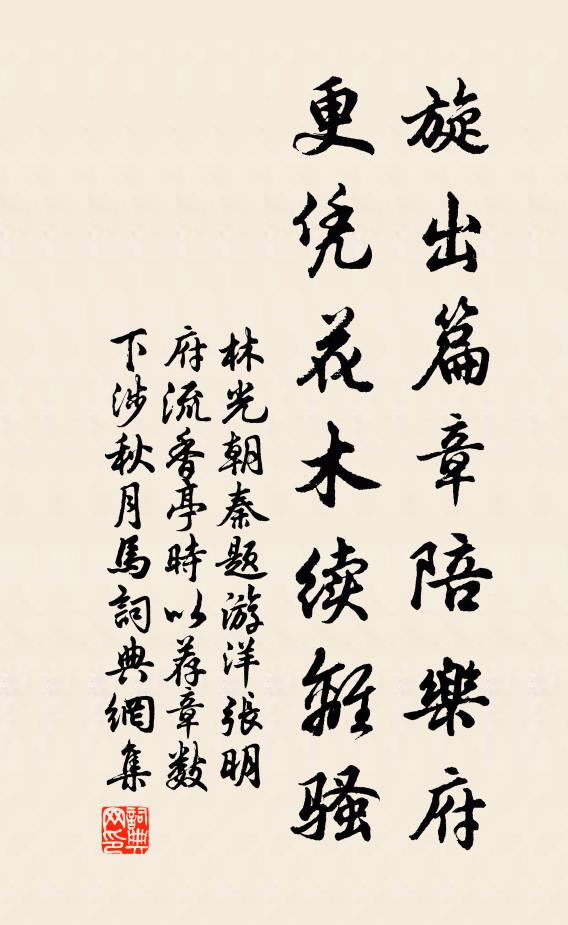 旋出篇章陪樂府
更凭花木续離骚
林光朝奉题游洋張明
府流香亭時以荐章数
下涉秋月馬詞典網集
詞典网印